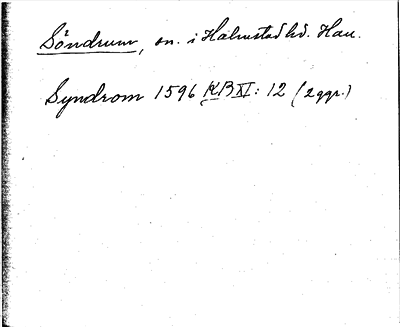 Söndrum, sn. i Halmstad hd. Hall.
Syndrom 1596 KB XI: 12 (2 ggr.)